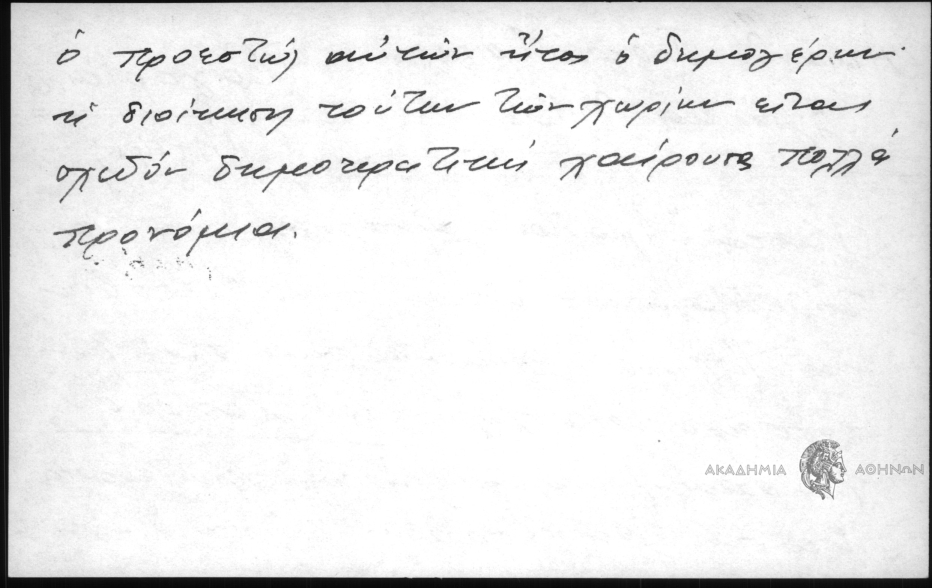 ὁ προεστώς αὐτῶν ἤτοι ὁ δημογέρων·
ἡ διοίκησις τούτων τῶν χωρίων εἶναι
σχεδόν δημοκρατική χαίρουσα πολλά
προνόμια.
ΑΚΑΔΗΜΙΑ ΑΘΗΝΩΝ